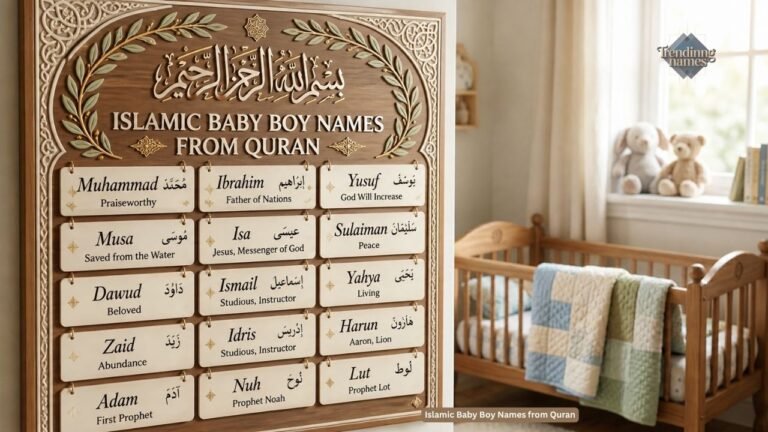 بسم الله الرحمن الرحيم
ISLAMIC BABY BOY NAMES
FROM QURAN
Muhammad مُحَنَّدَ
Praiseworthy
Ibrahim إبْرَاهِيم
Father of Nations
Yusuf يُوسُفْ
God Will Increase
Musa مُوسَى
Saved from the Water
Isa عِيسَى
Jesus, Messenger of God
Sulaiman سُلَيْمَانْ
Peace
Dawud دَاوُدَ
Beloved
Ismail إسْمَاعِيل
Studious, Instructor
Yahya يَحْيَى
Living
Zaid زَيْدَ
Abundance
Idris إدْرِيسَ
Studious, Instructor
Harun هَارُونْ
Aaron, Lion
Adam آدَمَ
First Prophet
Nuh نُوحَ
Prophet Noah
Lut لُوط
Prophet Lot
Trendinng
names
Islamic Baby Boy Names from Quran